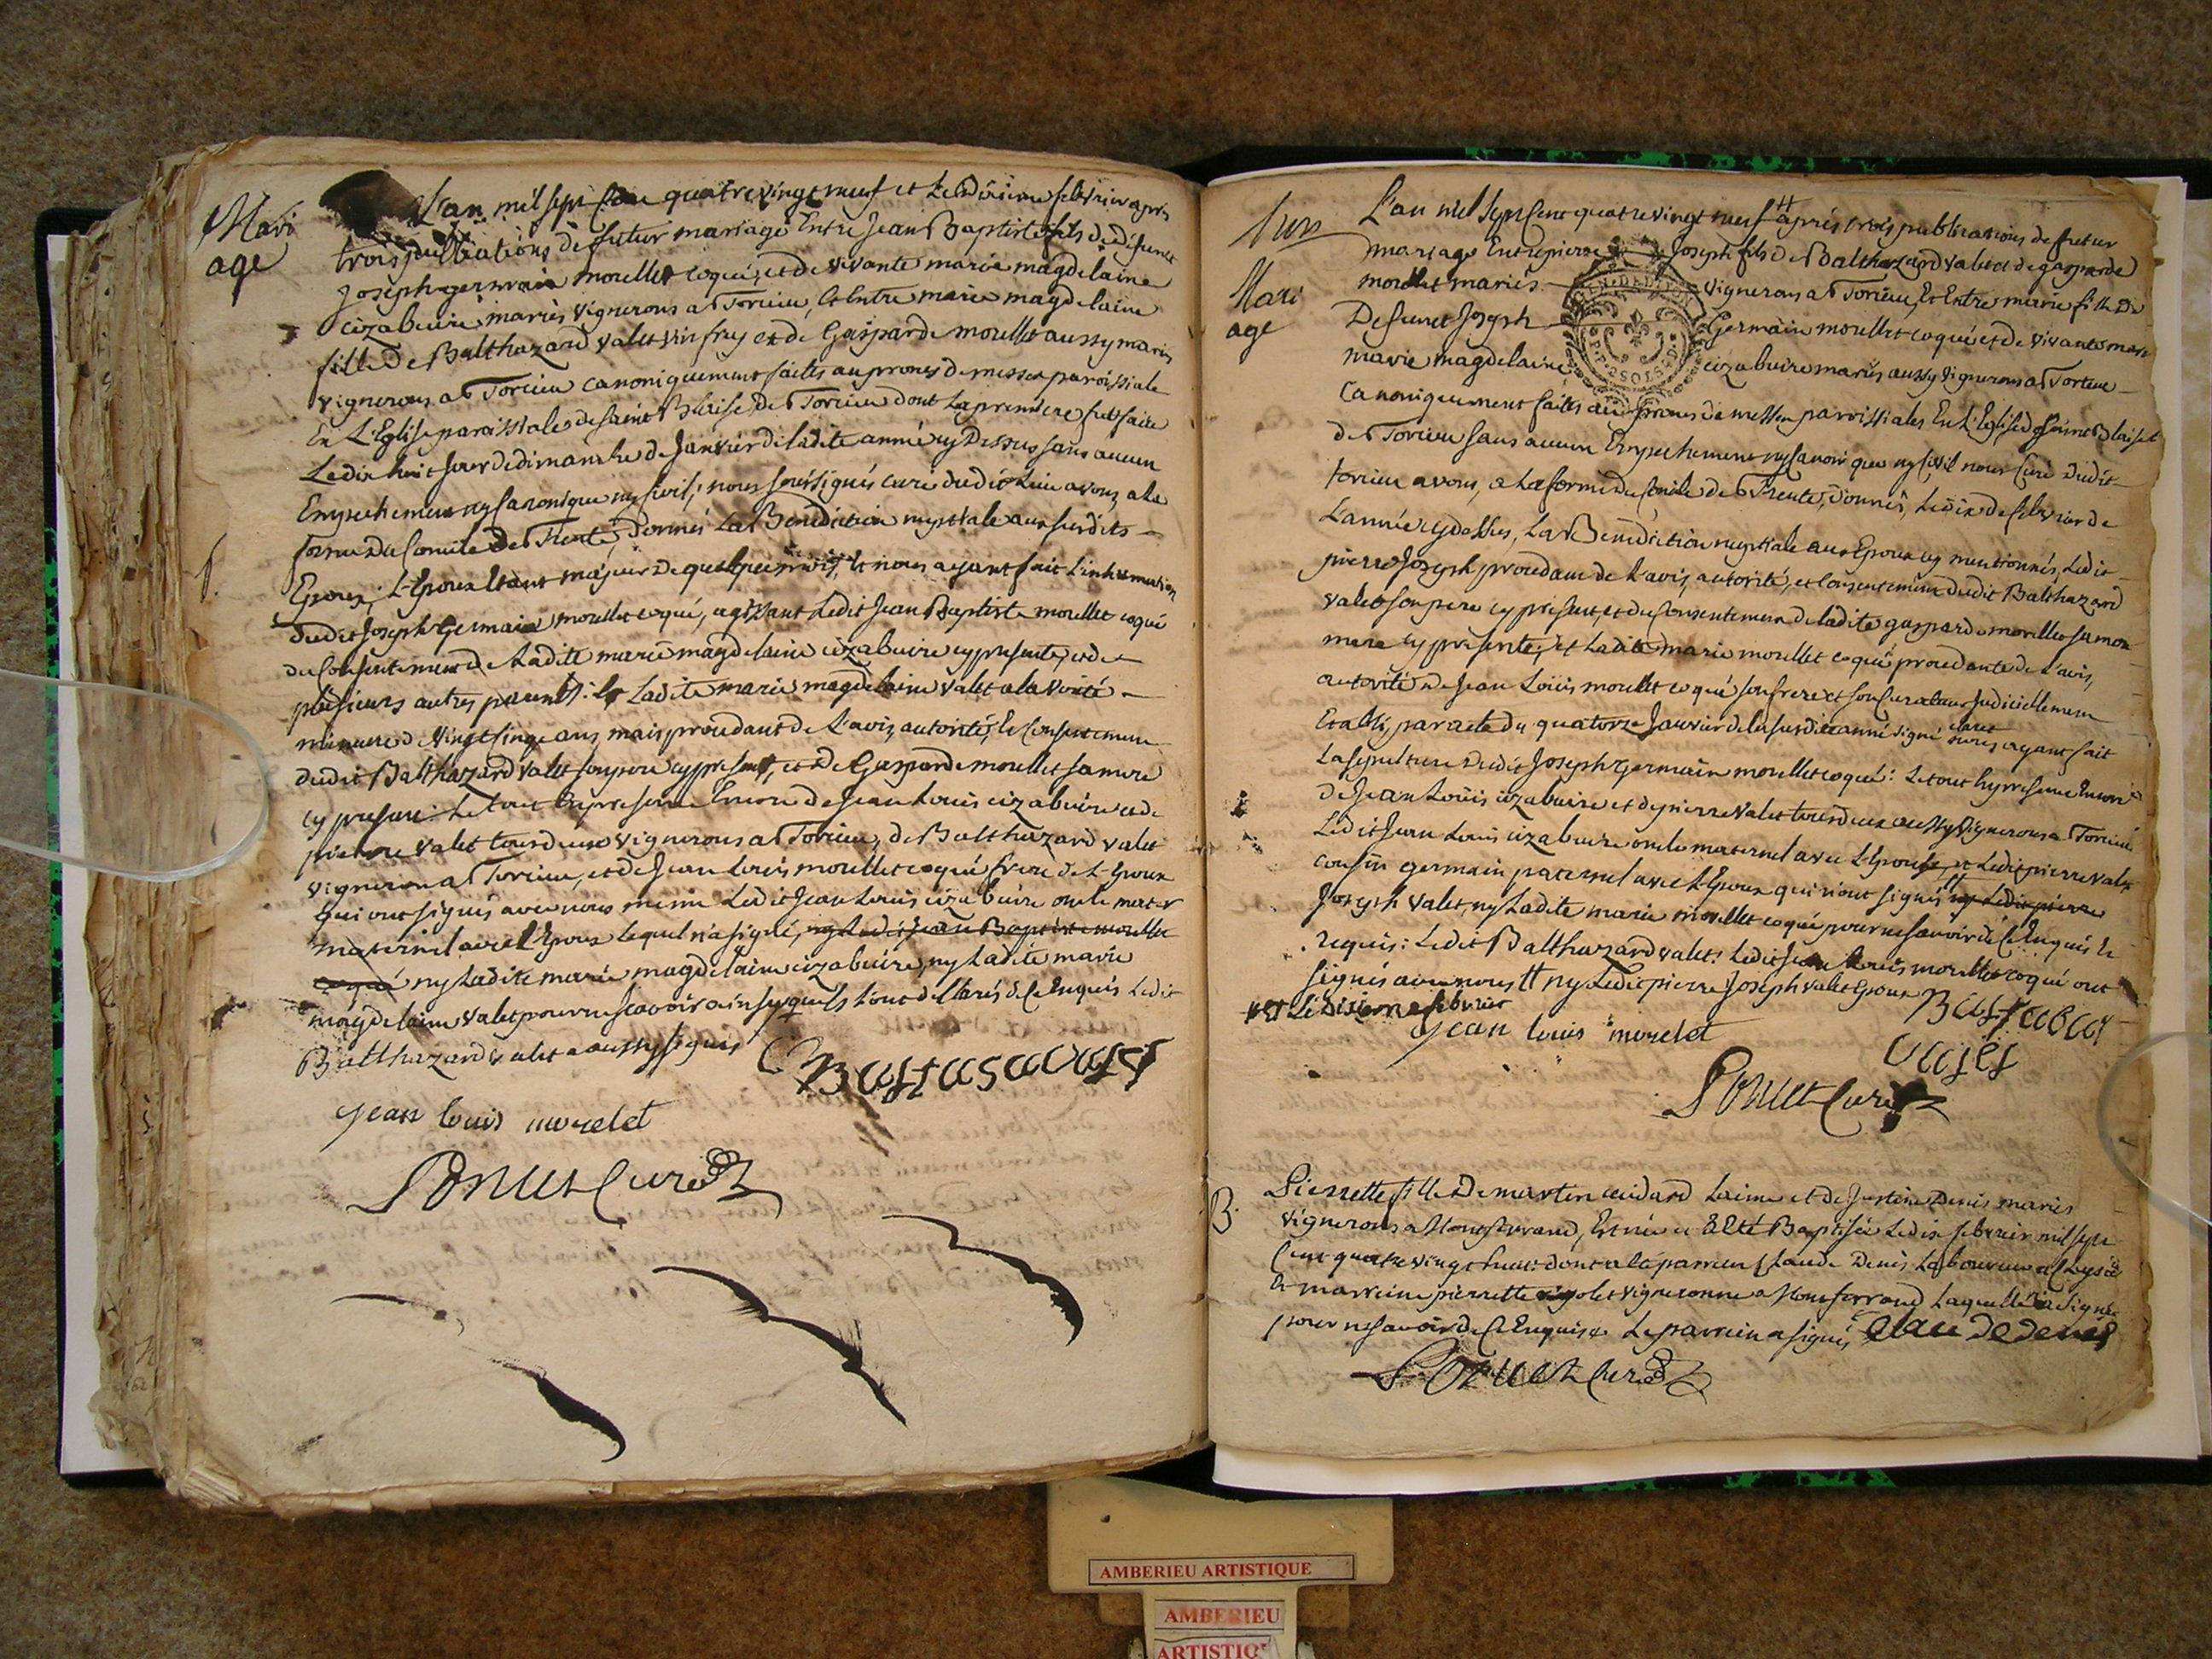 Mari
age
L'an mil sept cent quatre vingt neuf et le dixieme febvrier après
trois publications de futur mariage Entre Jean Baptiste fils de defunct
Joseph germain morellet coqué, et de vivante marie magdelaine
cizabuire mariés vignerons a Torcieu, Et Entre marie magdelaine
fille de Balthazard valet vin frey et de Gasparde morellet aussy mariés
vignerons a Torcieu canoniquement faites au prones de messes paroissiale
En L'Eglise paroissiale de saint Blaise de Torcieu dont la premiere fut faite
Le dix huit jour de dimanche de Janvier de ladite année cy dessus sans aucun
Empechement ny canonique ny civil; nous soussignés curé dudit lieu avons, a la
forme du Concile de Trente, donnés La Benediction nuptiale aux susdits
Epoux; L'Epoux Etant majeur de quelques mois, Et nous ayant fait L'inhumation
dudit Joseph Germain morellet coqué, agissant Ledit Jean Baptiste morellet coqué
du Consentement de Ladite marie magdelaine cizabuire cy presente, et de
plusieurs autres parents: Et Ladite marie magdelaine valet a la verité
mineure de vingt cinq ans, mais procedant de L'avis, autorité, Et Consentement
dudit Balthazard valet son pere cy present, et de Gasparde morellet sa mere
cy presente. Le tout En presence Encore de Jean Louis cizabuire et de
pierre valet tous deux vignerons a Torcieu, de Balthazard valet
vigneron a Torcieu, et de Jean Louis morellet coqué frere de L'Epoux
qui ont signés avec nous meme Ledit Jean Louis cizabuire oncle mater
maternel avec l'Epoux lequel n'a signé, ny Ledit Jean Baptiste morellet
coqué ny Ladite marie magdelaine cizabuire, ny Ladite marie
magdelaine valet pour ne scavoir ainsy qu'ils l'ont declarés de ce Enquis Ledit
Balthazard valet a aussy signé
Jean louis morelet
Bonnet Curé
1789
Mari
age
L'an mil sept Cent quatre vingt neuf # après trois publications de futur
mariage Entre pierre Joseph fils de Balthazard valet et de gasparde
morellet mariés vignerons a Torcieu, Et Entre marie fille de
Defunct Joseph Germain morellet coqué et de vivante
marie magdelaine cizabuire mariés aussy vignerons a Torcieu
Canoniquement faites au prones de messes parroissiales En L'Eglise de saint Blaise
de Torcieu sans aucun Empechement ny canonique ny civil nous Curé dudit
torcieu avons, a La forme du Concile de Trente, donnés, Le dix de febvrier de
L'année cy dessus, La Benediction nuptiale aux Epoux cy mentionnés, Ledit
pierre Joseph procedant de L'avis, autorité, et Consentement dudit Balthazard
valet son pere cy present, et du Consentement de ladite gasparde morellet sa
mere cy presente; Et Ladite marie morellet coqué procedante de L'avis,
autorité de Jean Loüis morellet coqué son frere et son Curateur Judiciellement
Etabli, par acte du quatorze Janvier de la susdite année signé nous ayant fait
La sepulture dudit Joseph Germain morellet coqué: Le tout En presence Encore
de Jean Loüis cizabuire et de pierre valet tous deux aussy vignerons a Torcieu
Ledit Jean Louis cizabuire oncle maternel avec L'Epouse, et Ledit pierre valet
cousin germain paternel avec L'Epoux qui n'ont signés # ny Ledit pierre
Joseph valet, ny Ladite marie morellet coqué pour ne savoir de Ce Enquis Et
Requis: Ledit Balthazard valet: Ledit Jean Louis morellet coqué ont
signés avec nous # ny Ledit pierre Joseph valet Epoux
# Et Le dixieme febvrier
jean louis morelet
valet
Bonnet Curé
B.
Pierrette fille de martin cuidard Laime et de Justine Denis mariés
vignerons a Montferrand, Est née et a Eté Baptisée Le dix febvrier mil sept
Cent quatre vingt neuf: dont a Eté parrein Claude Denis Laboureur a
Et marreine pierrette vigneronne a Montferrand Laquelle n'a signé
pour ne savoir de Ce Enquise Le parrein a signé claude denis
Bonnet Curé
GEN. DE DIJON
P.P. 2 SOLS 8 D.
AMBERIEU ARTISTIQUE
AMBERIEU
ARTISTIQ